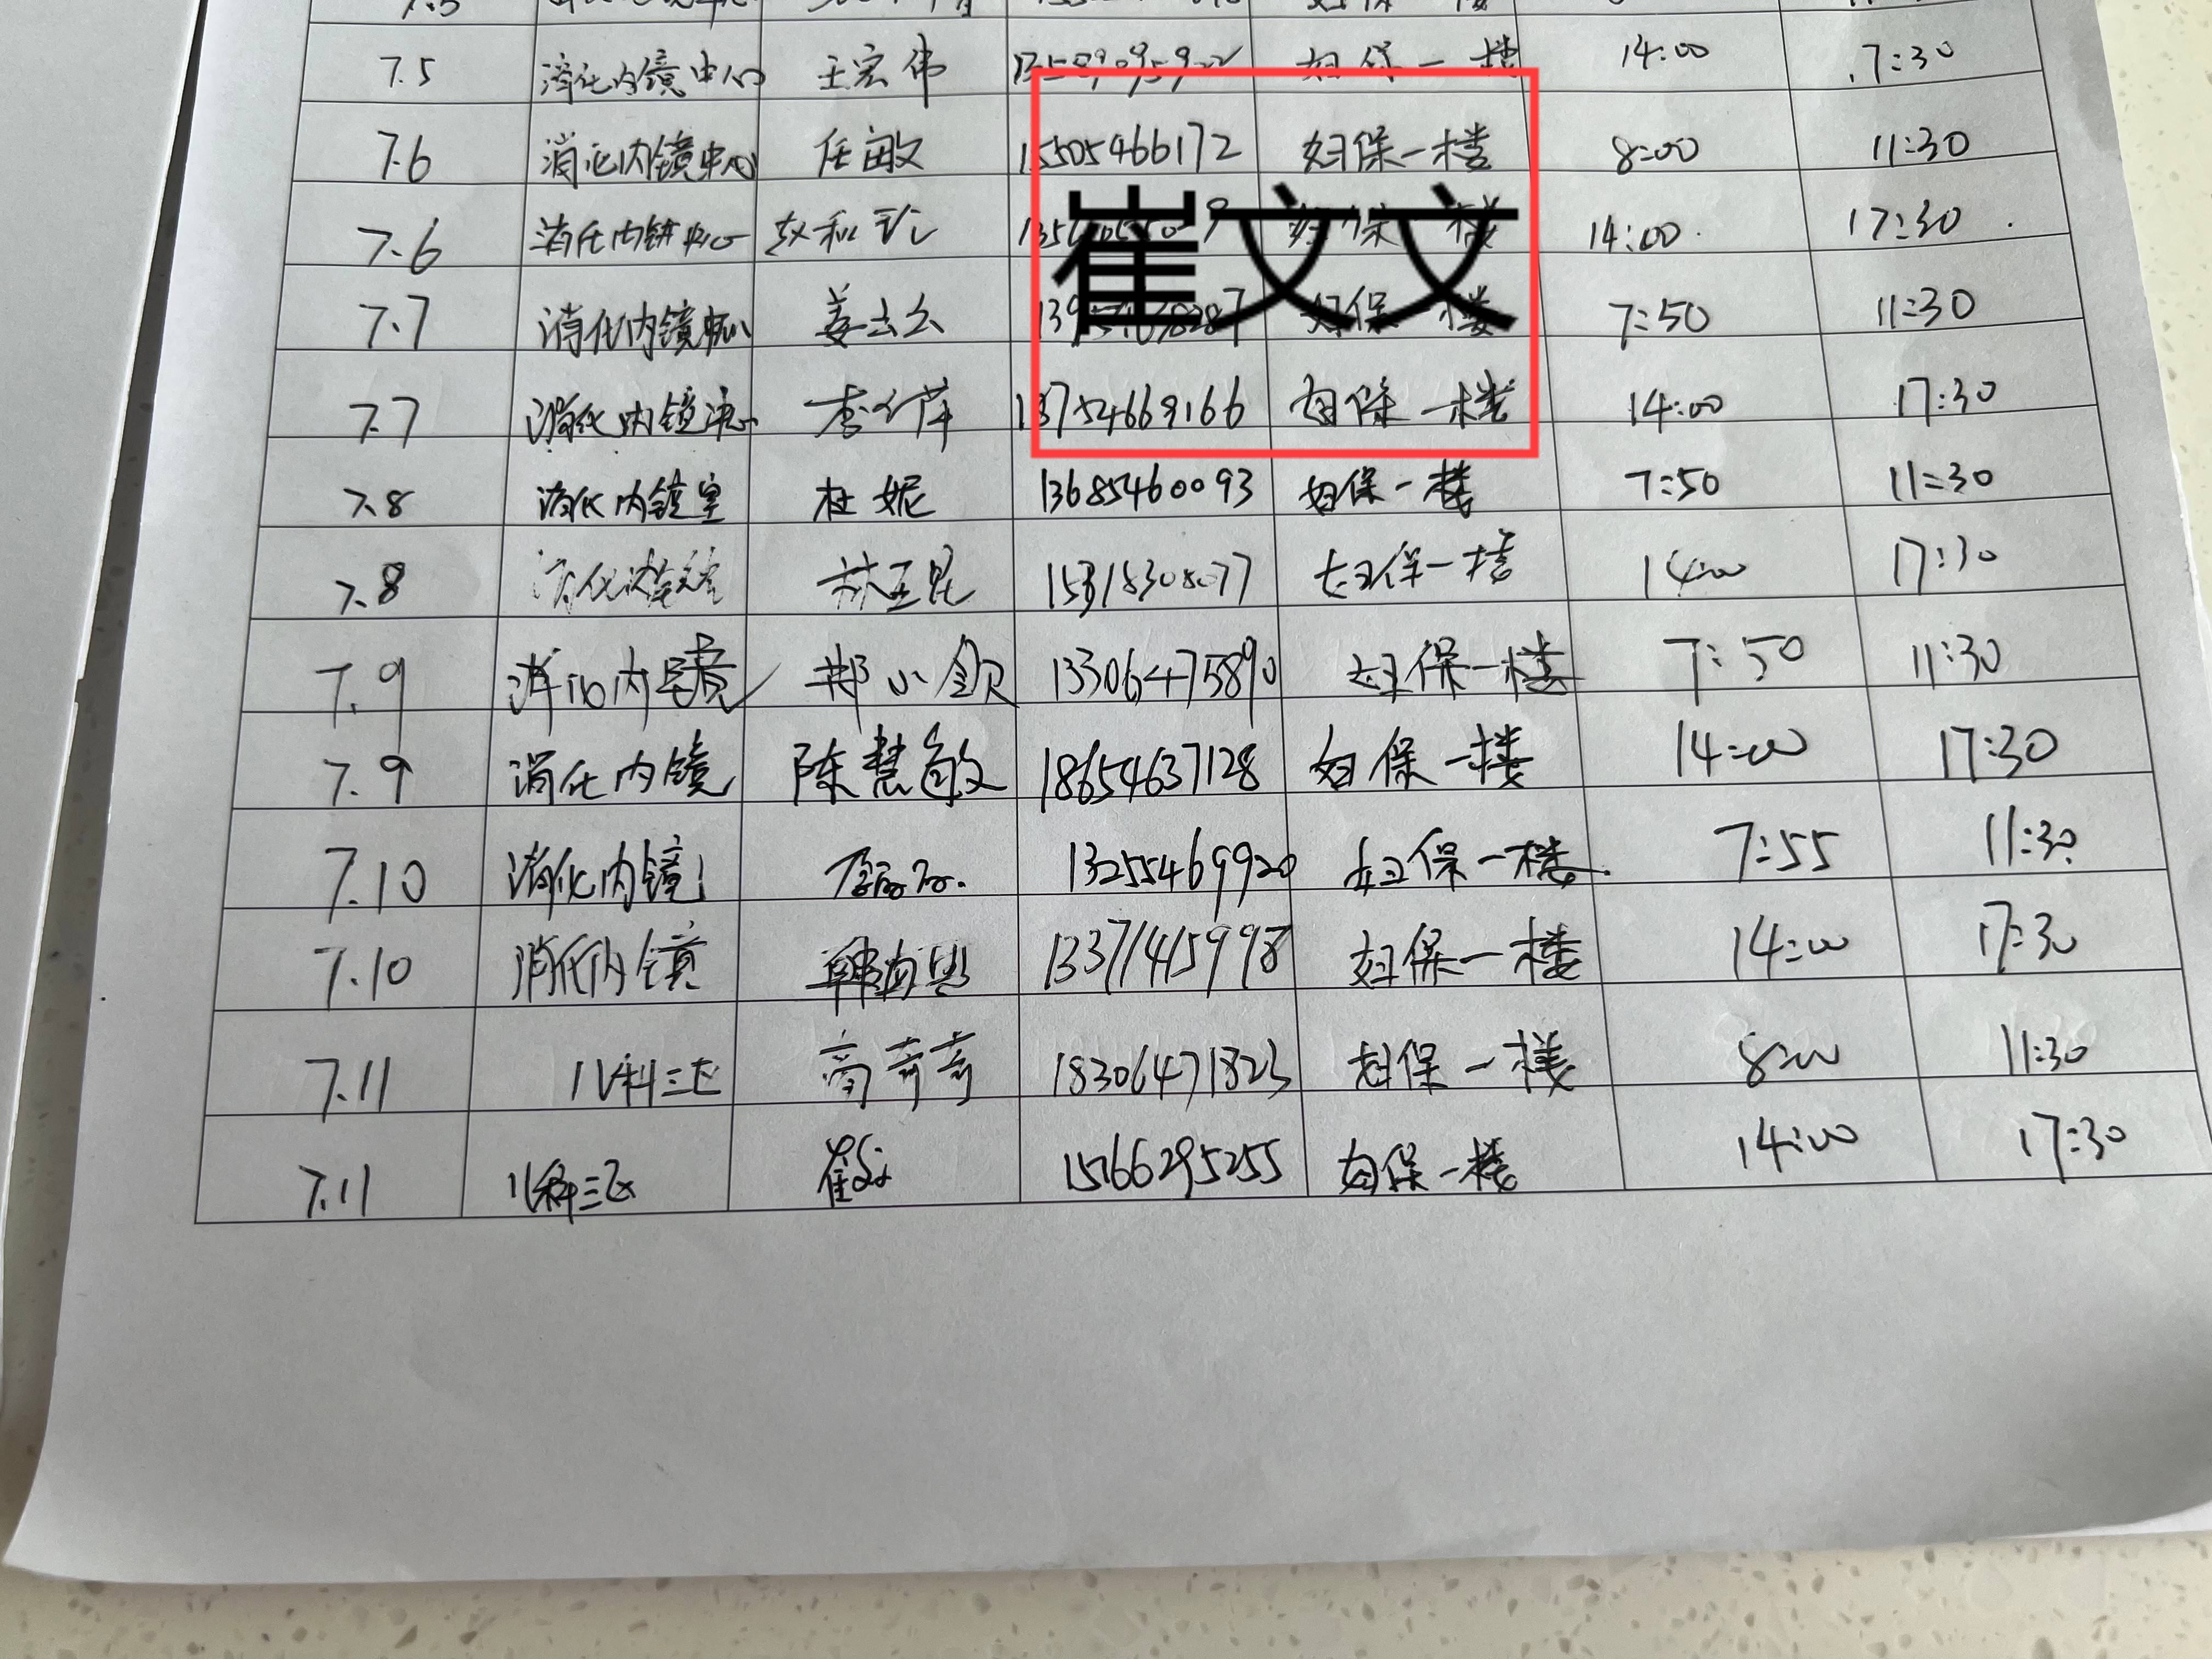 7.5 消化内镜中心 王宏伟 妇保一楼 14:00 17:30
7.6 消化内镜中心 任敏 15505466172 妇保一楼 8:00 11:30
7.6 消化内镜中心 妇保一楼 14:00 17:30
崔文文
7.7 消化内镜中心 姜云云 妇保一楼 7:50 11:30
7.7 消化内镜中心 13754669166 妇保一楼 14:00 17:30
7.8 消化内镜室 杜妮 13685460093 妇保一楼 7:50 11:30
7.8 妇保一楼 14:00 17:30
7.9 消化内镜 郑小钦 13306475890 妇保一楼 7:50 11:30
7.9 消化内镜 陈慧敏 18654637128 妇保一楼 14:00 17:30
7.10 消化内镜 13255469920 妇保一楼 7:55 11:30
7.10 消化内镜 13371415998 妇保一楼 14:00 17:30
7.11 儿科三区 高奇奇 18306471823 妇保一楼 8:00 11:30
7.11 儿科三区 15766295255 妇保一楼 14:00 17:30